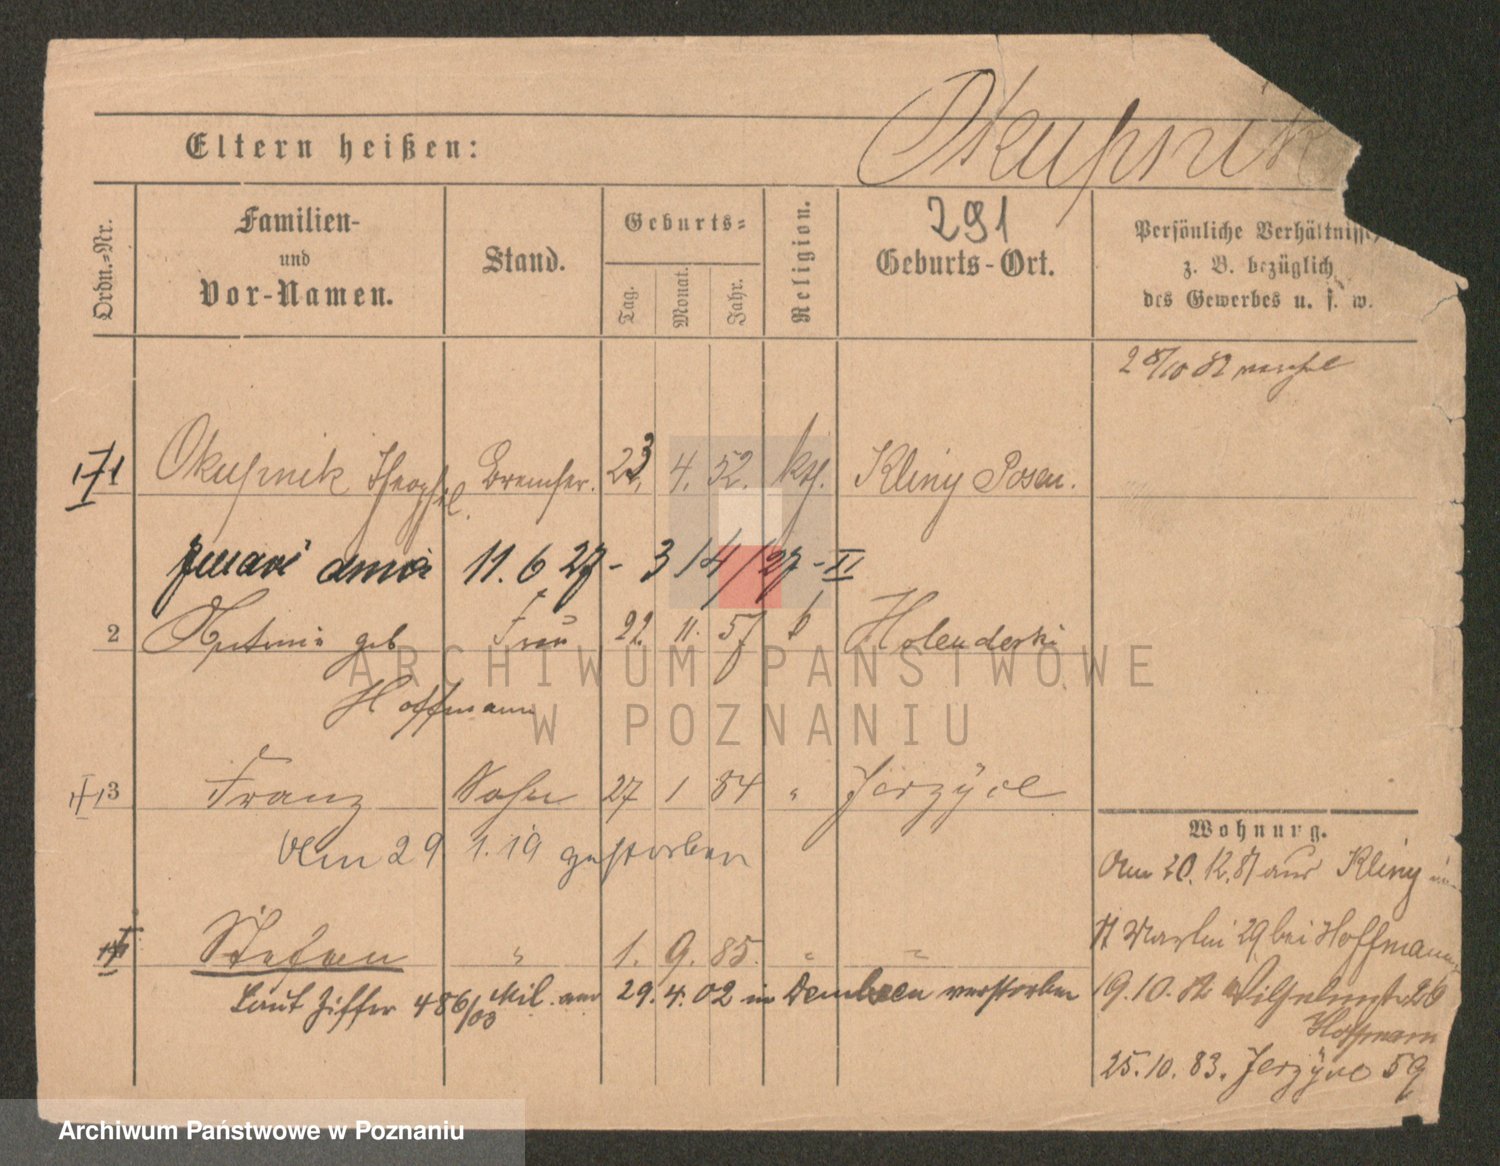 Okupnik
Eltern heißen:
Ordn.-Nr.
Familien-
und
Vor-Namen.
Stand.
Geburts-
Tag.
Monat.
Jahr.
Religion.
291
Geburts-Ort.
Persönliche Verhältnisse,
z. B. bezüglich
des Gewerbes u. s. w.
28/10 82
1 Okupnik Theophil. Bremser. 23. 4. 52. kth. Kliny Posen.
11. 6 27 - 3/4/27 - II
2 Antonie geb Frau 22. 11. 57 Holenderski
Hoffmann
3 Franz Sohn 27 1 84 " Jerzyce
Am 29 1. 19 gestorben
Stefan " 1. 9. 85. " "
Laut Ziffer 486/03 Mil. am 29. 4. 02 in Dembsen verstorben
Wohnung.
Am 20. 12. 81 aus Kliny in
St Martin 29 bei Hoffmann
19. 10. 82 Wilhelmstr 26
Hoffmann
25. 10. 83. Jerzyce 59
ARCHIWUM PAŃSTWOWE
W POZNANIU
Archiwum Państwowe w Poznaniu